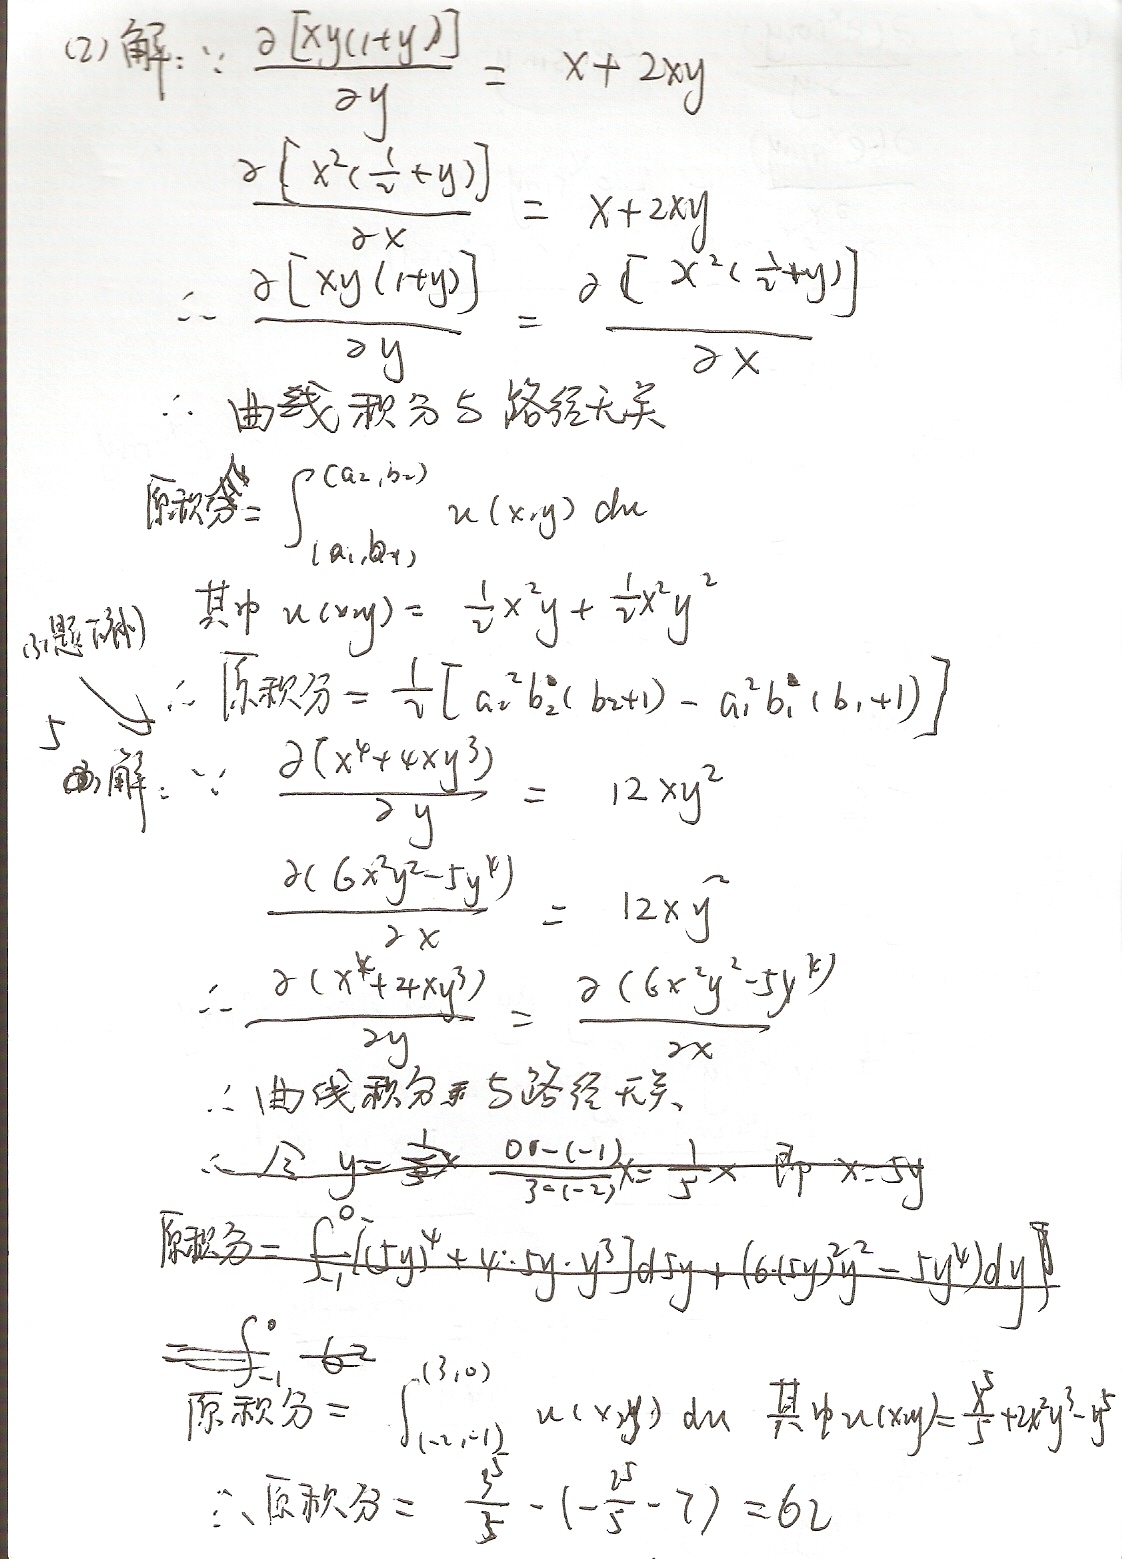 (2) 解: ∵ ∂[xy(1+y)]/∂y = x+2xy
∂[x²(1/2+y)]/∂x = x+2xy
∴ ∂[xy(1+y)]/∂y = ∂[x²(1/2+y)]/∂x
∴ 曲线积分与路径无关
原积分= ∫_(a₁,b₁)^(a₂,b₂) u(x,y) du
其中 u(x,y) = 1/2 x²y + 1/2 x²y²
∴ 原积分 = 1/2 [a₂²b₂(b₂+1) - a₁²b₁(b₁+1)]
5
解: ∵ ∂(x⁴+4xy³)/∂y = 12xy²
∂(6x²y²-5y⁴)/∂x = 12xy²
∴ ∂(x⁴+4xy³)/∂y = ∂(6x²y²-5y⁴)/∂x
∴ 曲线积分与路径无关
∴ 令 y= x = 1/5 x 即 x=5y
原积分 = ∫_-1^0 [(5y)⁴+4·5y·y³]d5y + (6·(5y)²y²-5y⁴)dy
= ∫_-1^0
原积分 = ∫_(-2,-1)^(3,0) u(x,y) du 其中u(x,y)= x⁵/5+2x²y³-y⁵
∴ 原积分 = 3⁵/5 - (-2⁵/5 - 7) = 62